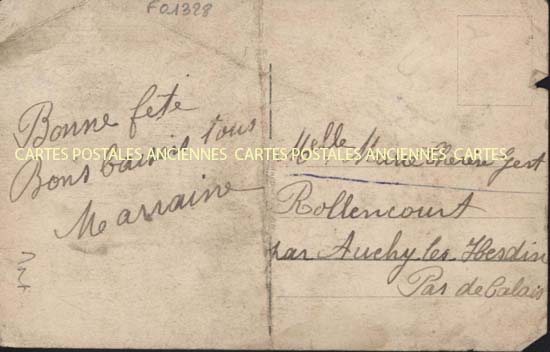 F01328
Bonne fete
Bons baisers tous
Marraine
CARTES POSTALES ANCIENNES CARTES POSTALES ANCIENNES CARTES POSTALES ANCIENNES
Melle Marie
Rollencourt
par Auchy les Hesdin
Pas de Calais